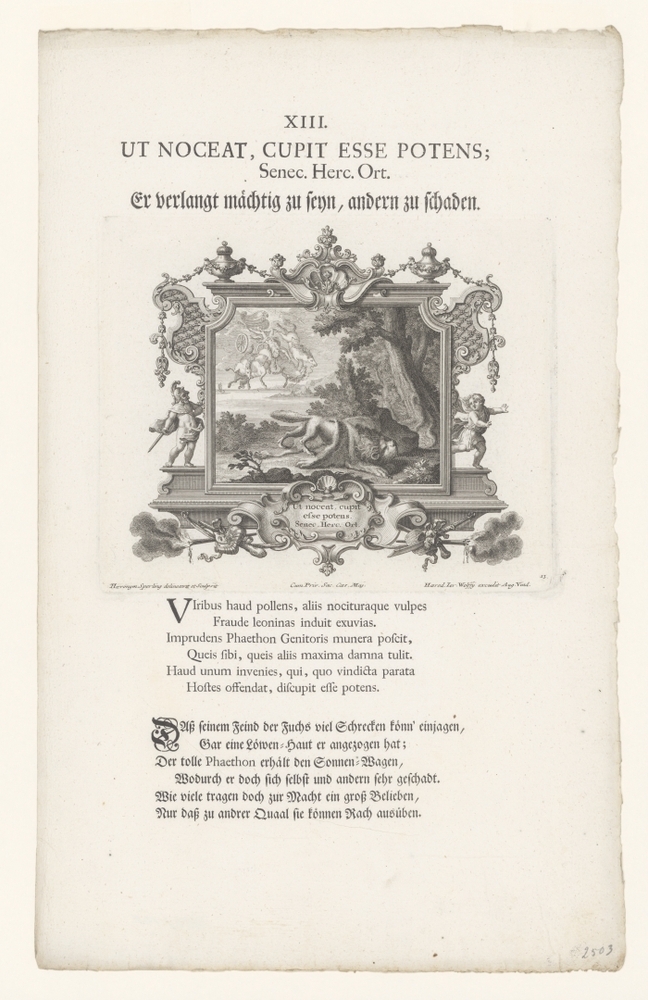 XIII.
UT NOCEAT, CUPIT ESSE POTENS;
Senec. Herc. Ort.
Er verlangt mächtig zu seyn, andern zu schaden.
Ut noceat, cupit
esse potens.
Senec. Herc. Ort.
13.
Hieronym. Sperling delineavit et sculpsit Cum Priv. Sac. Cæs. Maj. Hæred. Ier. Wolffy excudit Aug. Vind.
VIribus haud pollens, aliis nocituraque vulpes
Fraude leoninas induit exuvias.
Imprudens Phaethon Genitoris munera poſcit,
Queis ſibi, queis aliis maxima damna tulit.
Haud unum invenies, qui, quo vindicta parata
Hoſtes offendat, diſcupit eſſe potens.
DAß ſeinem Feind der Fuchs viel Schrecken könn' einjagen,
Gar eine Löwen-Haut er angezogen hat;
Der tolle Phaethon erhält den Sonnen-Wagen,
Wodurch er doch ſich ſelbſt und andern ſehr geſchadt.
Wie viele tragen doch zur Macht ein groß Belieben,
Nur daß zu andrer Quaal ſie können Rach ausüben.
2503